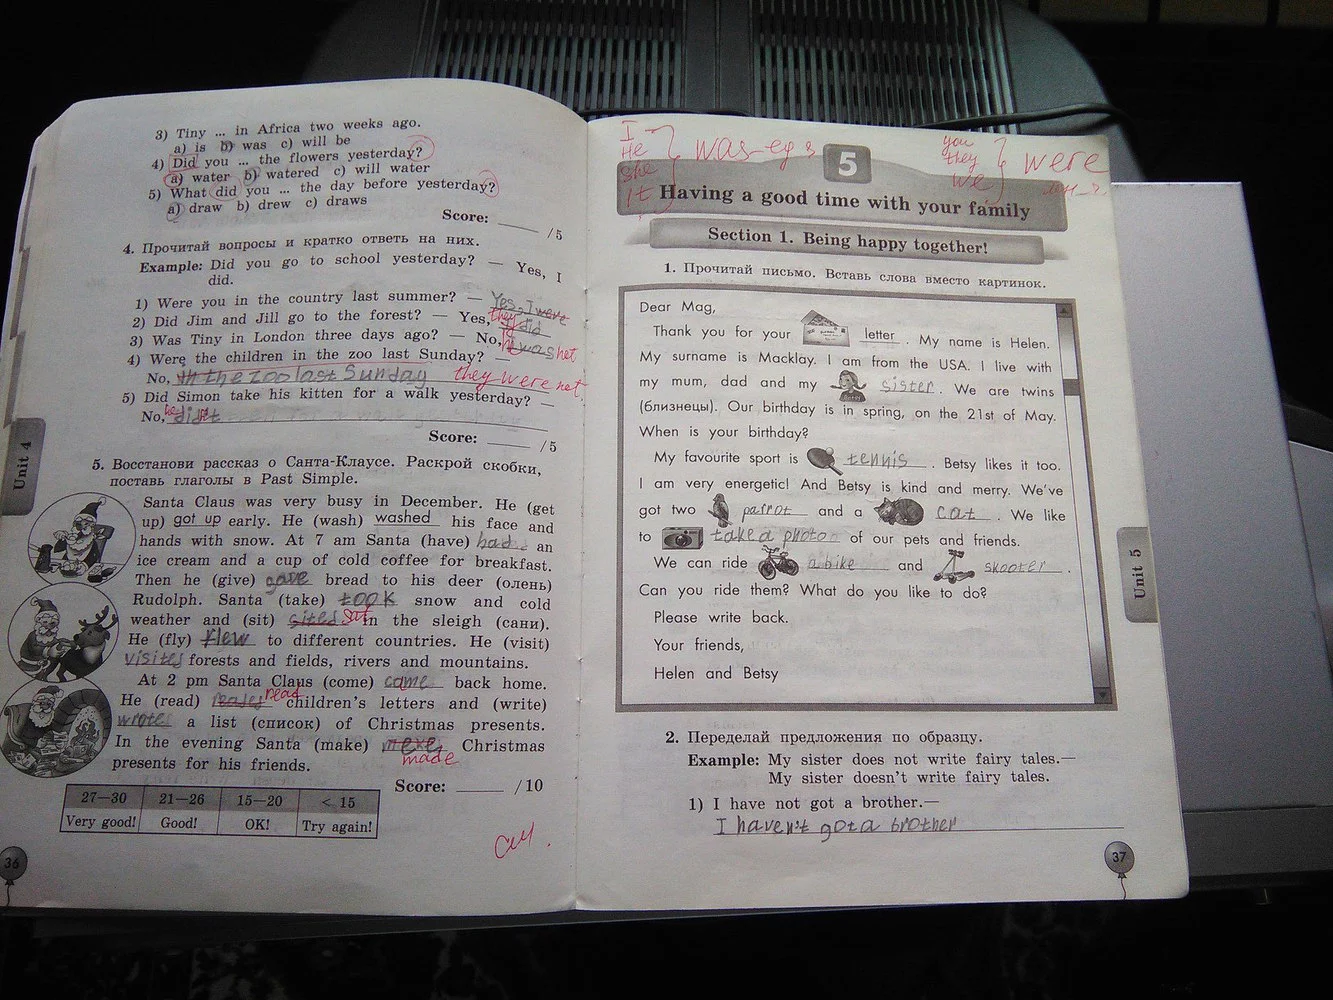 3) Tiny ... in Africa two weeks ago.
a) is b) was c) will be
4) Did you ... the flowers yesterday?
a) water b) watered c) will water
5) What did you ... the day before yesterday?
a) draw b) drew c) draws
Score: ____ /5
4. Прочитай вопросы и кратко ответь на них.
Example: Did you go to school yesterday? — Yes, I
did.
1) Were you in the country last summer? — Yes, I were
2) Did Jim and Jill go to the forest? — Yes, they did
3) Was Tiny in London three days ago? — No, it was not
4) Were the children in the zoo last Sunday? —
No, in the zoo last Sunday they were not
5) Did Simon take his kitten for a walk yesterday? —
No, he didn't
Score: ____ /5
5. Восстанови рассказ о Санта-Клаусе. Раскрой скобки,
поставь глаголы в Past Simple.
Santa Claus was very busy in December. He (get
up) got up early. He (wash) washed his face and
hands with snow. At 7 am Santa (have) had an
ice cream and a cup of cold coffee for breakfast.
Then he (give) gave bread to his deer (олень)
Rudolph. Santa (take) took snow and cold
weather and (sit) sited sat in the sleigh (сани).
He (fly) flew to different countries. He (visit)
visites forests and fields, rivers and mountains.
At 2 pm Santa Claus (come) came back home.
He (read) read children's letters and (write)
wrote a list (список) of Christmas presents.
In the evening Santa (make) Christmas
made
presents for his friends.
Score: ____ /10
27—30 21—26 15—20 < 15
Very good! Good! OK! Try again!
Unit 4
36
I
He
she
it
was
you
they
we
were
5
Having a good time with your family
Section 1. Being happy together!
1. Прочитай письмо. Вставь слова вместо картинок.
Dear Mag,
Thank you for your letter. My name is Helen.
My surname is Macklay. I am from the USA. I live with
my mum, dad and my sister. We are twins
(близнецы). Our birthday is in spring, on the 21st of May.
When is your birthday?
My favourite sport is tennis. Betsy likes it too.
I am very energetic! And Betsy is kind and merry. We've
got two parrot and a cat. We like
to take a photo of our pets and friends.
We can ride a bike and skooter.
Can you ride them? What do you like to do?
Please write back.
Your friends,
Helen and Betsy
2. Переделай предложения по образцу.
Example: My sister does not write fairy tales.—
My sister doesn't write fairy tales.
1) I have not got a brother.—
I haven't got a brother
Unit 5
37